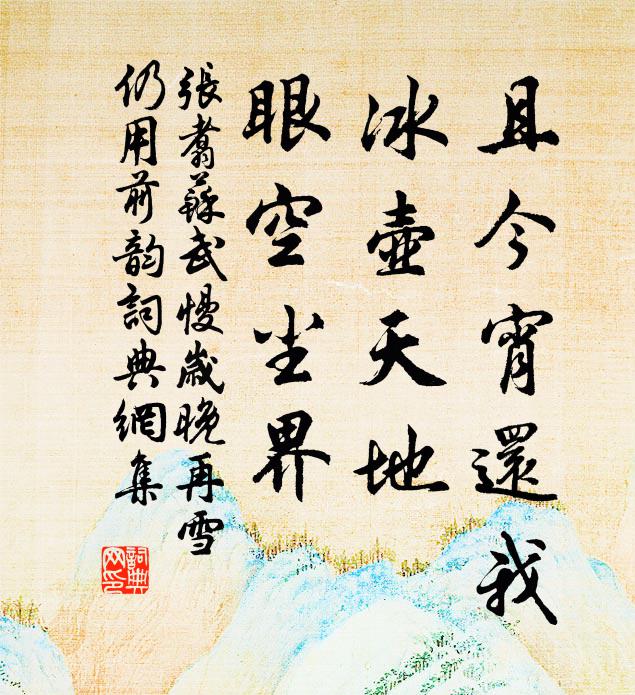 且今宵還我
冰壺天地
眼空尘界
張翥蘇武慢歲晚再雪
仍用前韵詞典網集
詞典网印